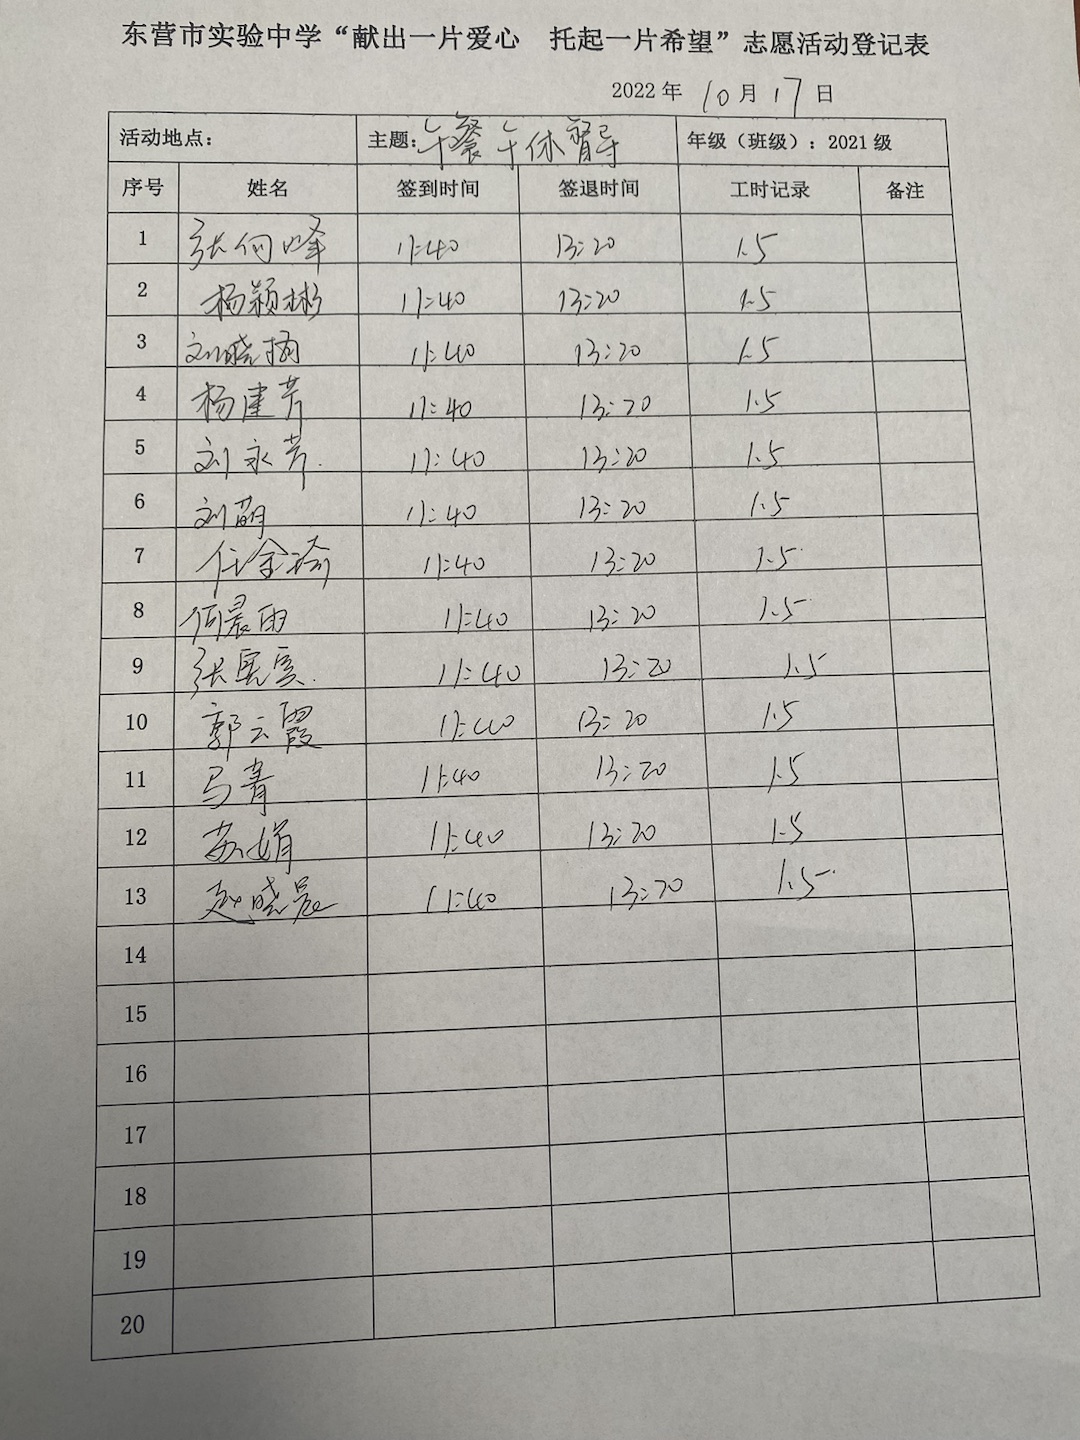 东营市实验中学“献出一片爱心 托起一片希望”志愿活动登记表
2022年 10月 17日
活动地点: 主题:午餐午休督导 年级（班级）: 2021级
序号 姓名 签到时间 签退时间 工时记录 备注
1 张何峰 11:40 13:20 1.5
2 杨颖彬 11:40 13:20 1.5
3 刘晓 11:40 13:20 1.5
4 杨建芳 11:40 13:20 1.5
5 刘永芳. 11:40 13:20 1.5
6 刘萌 11:40 13:20 1.5
7 任金 11:40 13:20 1.5
8 何晨雨 11:40 13:20 1.5
9 张 11:40 13:20 1.5
10 郭云霞 11:40 13:20 1.5
11 马青 11:40 13:20 1.5
12 苏娟 11:40 13:20 1.5
13 赵晓晨 11:40 13:20 1.5
14
15
16
17
18
19
20